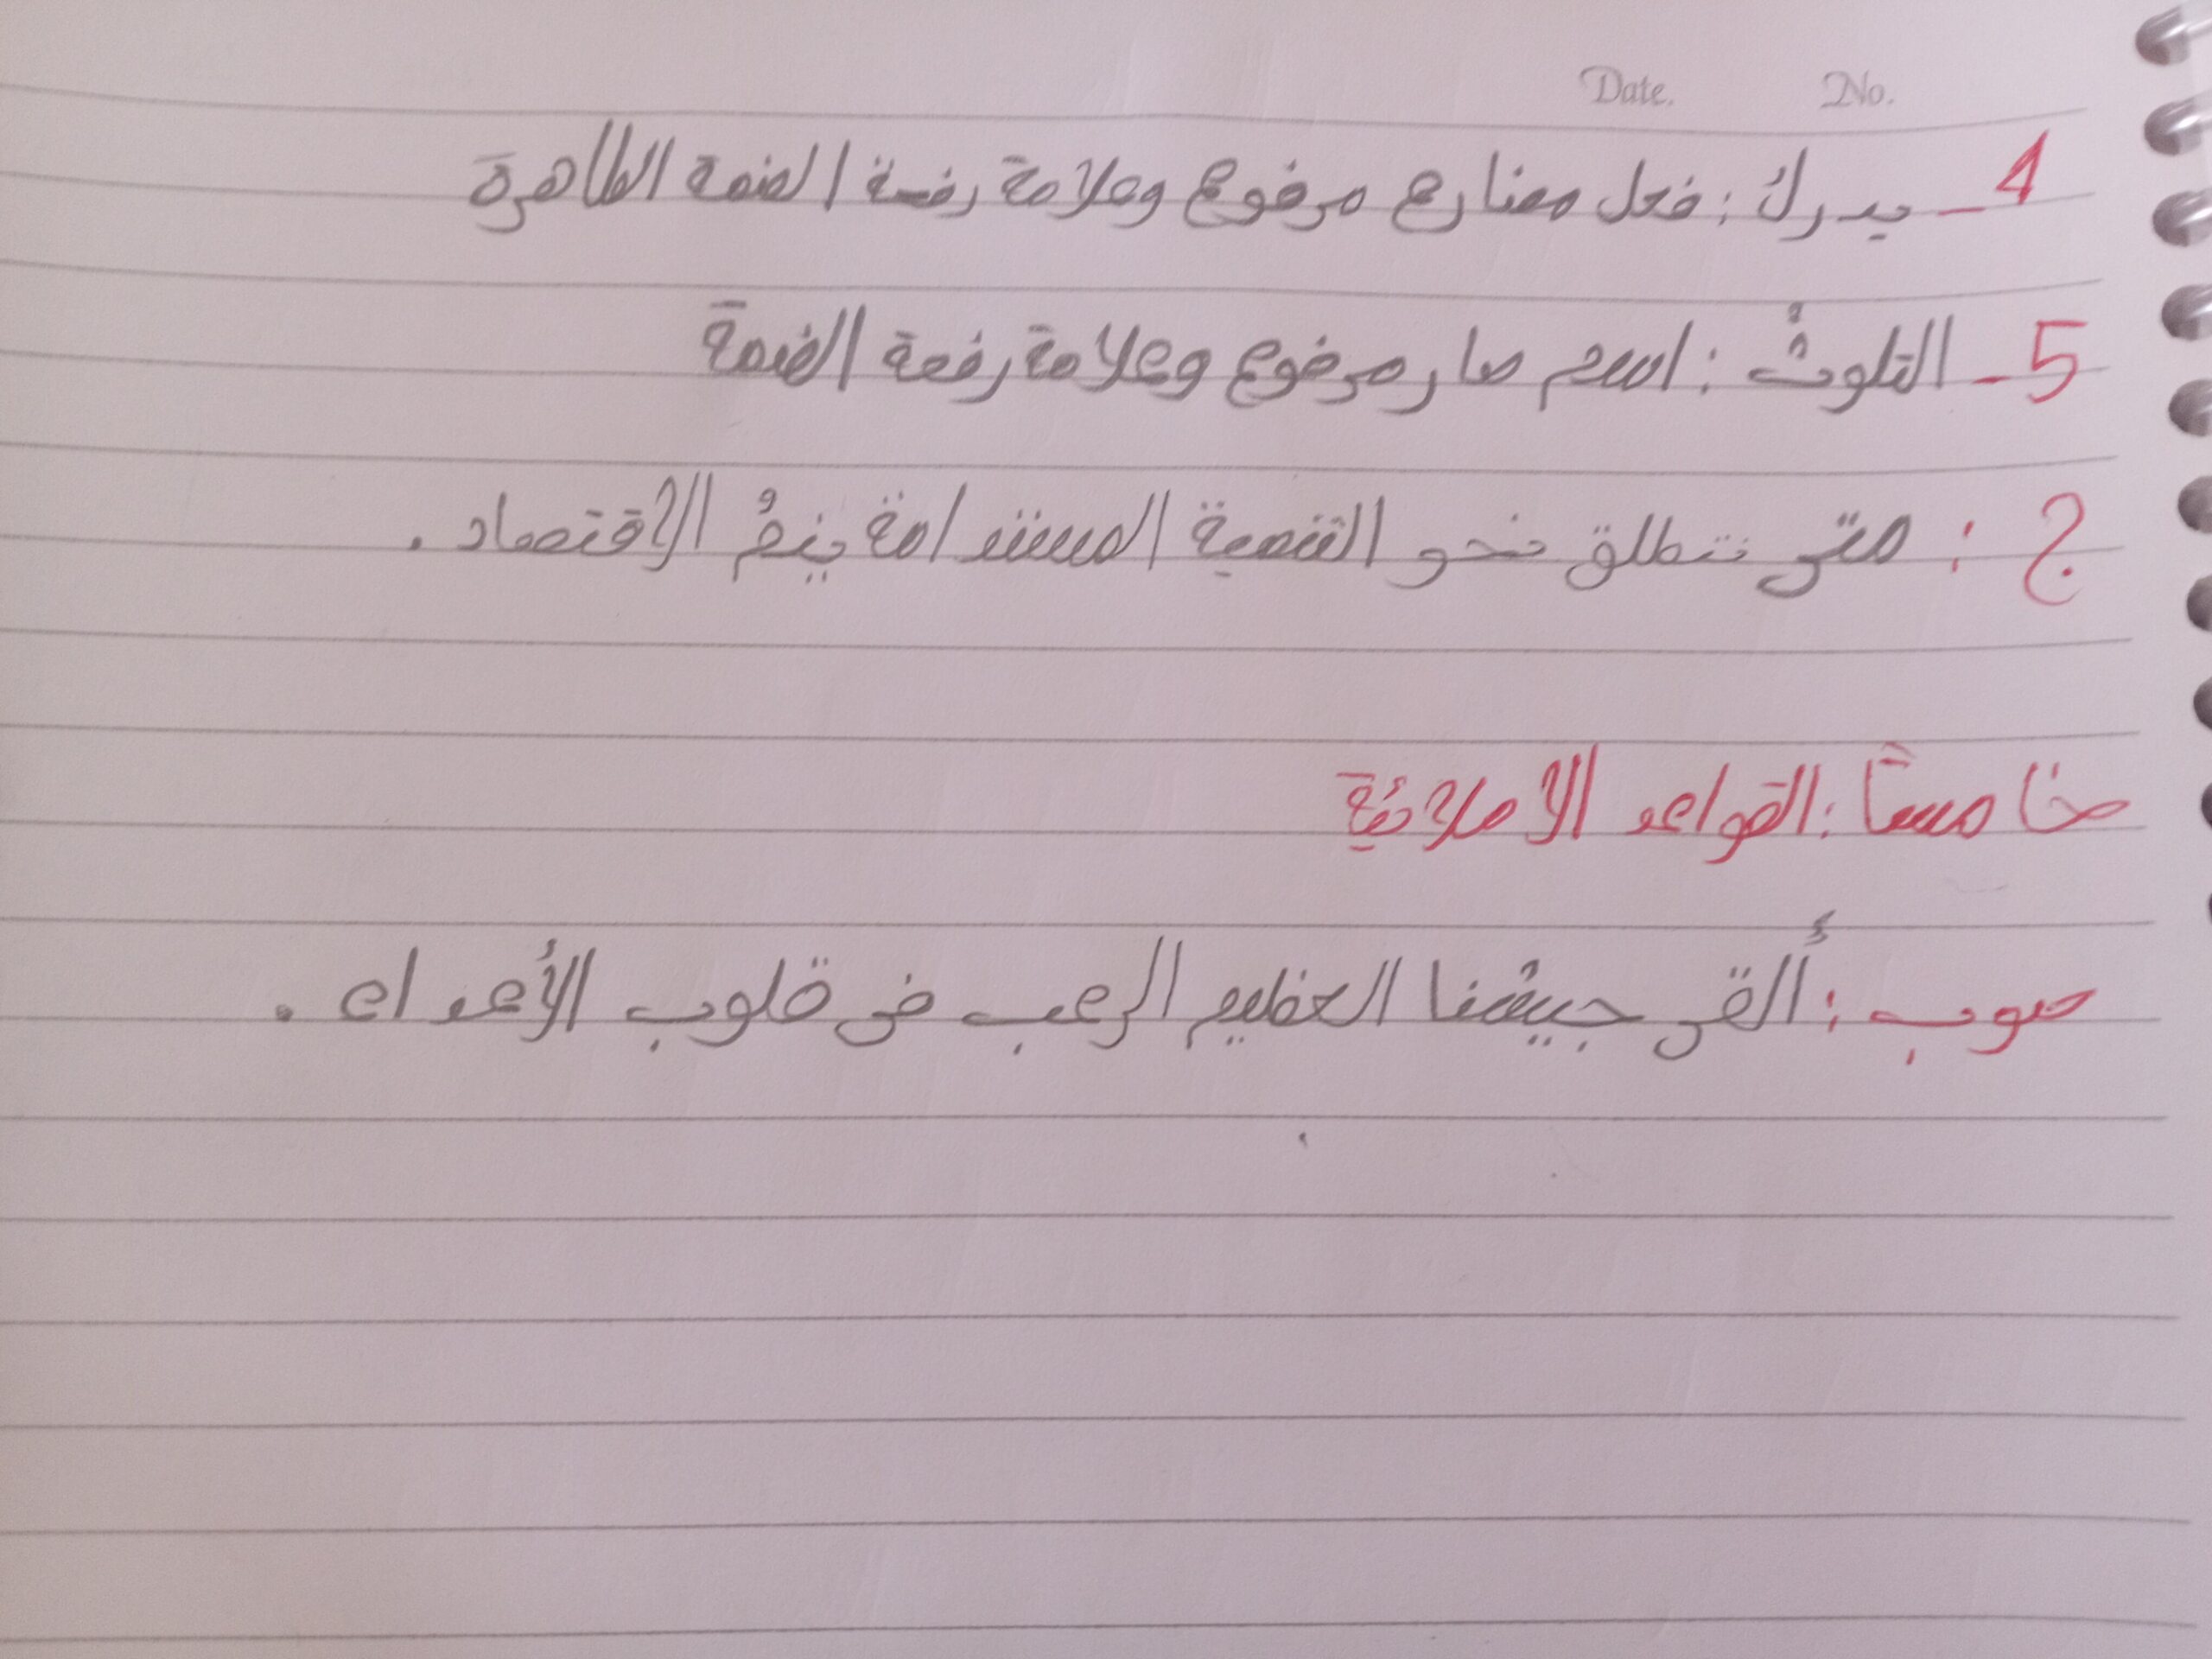 Date. No.
4_ يدرك : فعل مضارع مرفوع وعلامة رفعة الضمة الظاهرة
5_ التلوثُ : اسم صار مرفوع وعلامة رفعة الضمة
ج : متى ننطلق نحو التنمية المستدامة ينمُ الاقتصاد .
خامساً : القواعد الاملائية
صوب : ألقى جيشُنا العظيم الرعب فى قلوب الأعداء .